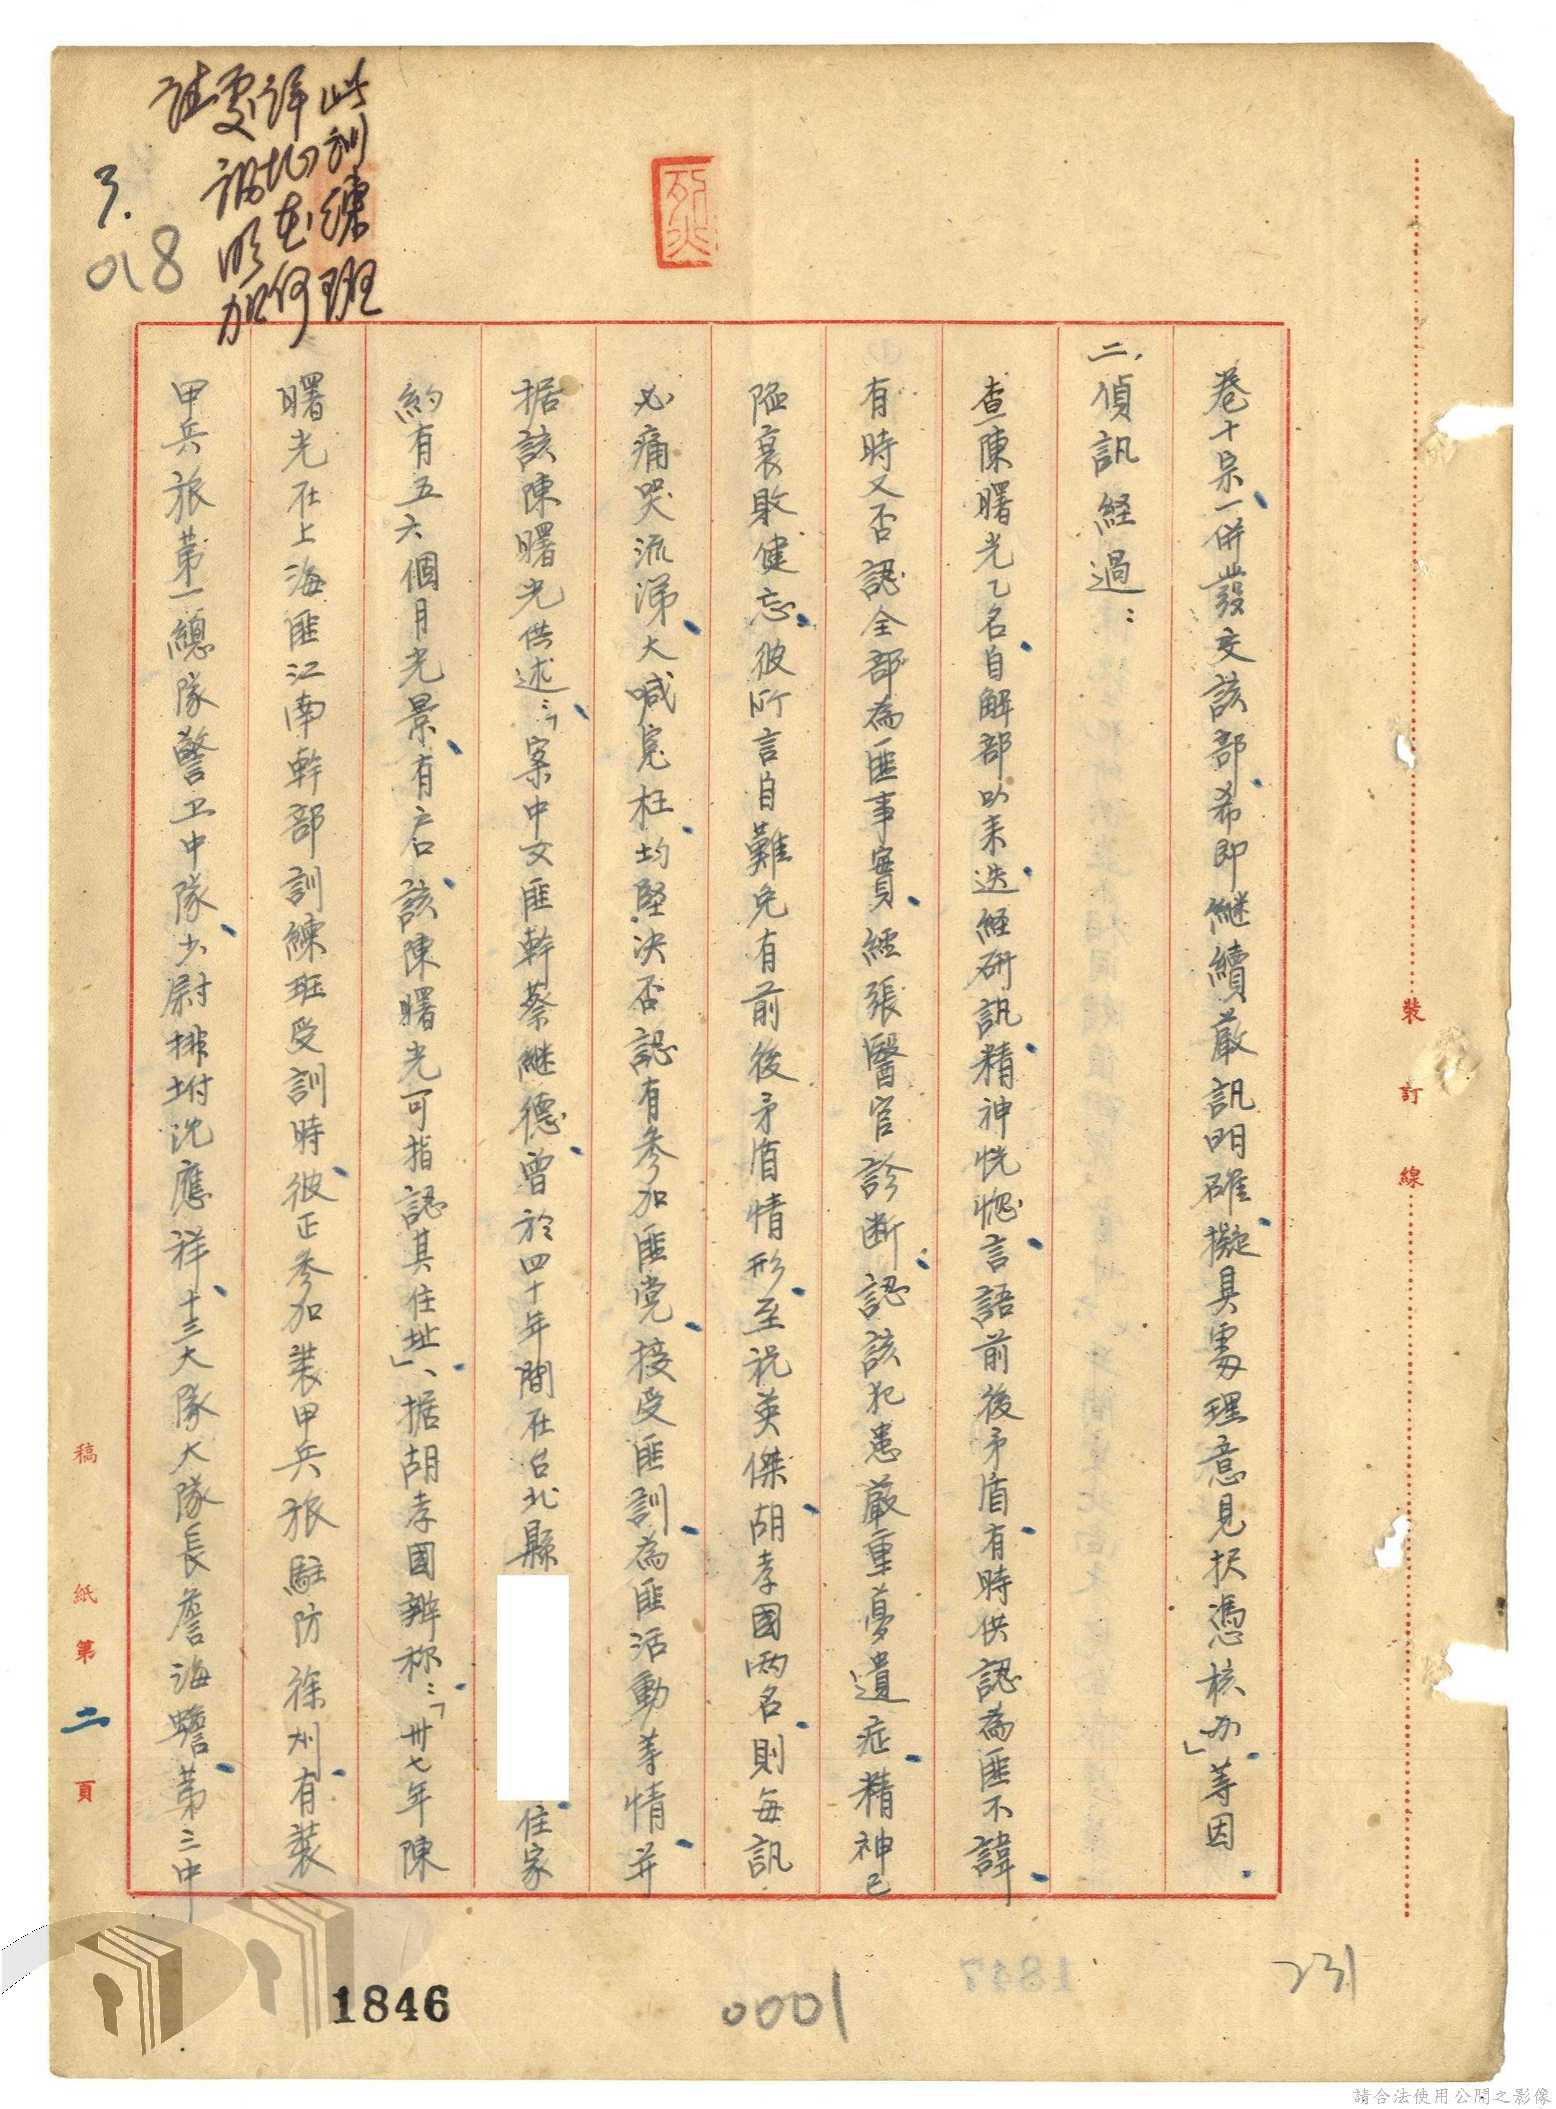 此訓練班
詳地在何
處訊明加
註
3.
018
卷十杲一併發交該部希即繼續嚴訊明確擬具處理意見択憑核办」等因
二、偵訊経過：
查陳曙光乙名自解部以来迭経研訊精神恍惚言語前後矛盾有時供認為匪不諱
有時又否認全部為匪事實經張醫官診断：認該犯患嚴重夢遺症精神已
陷衰敗健忘彼所言自難免有前後矛盾情形至祝英傑胡孝國兩名則每訊
必痛哭流涕大喊冤枉均堅決否認有參加匪党接受匪訓為匪活動等情并
据該陳曙光供述：「案中文匪幹蔡継德曾於四十年間在台北縣 住家
約有五六個月光景有户口該陳曙光可指認其住址」、据胡孝國辨称：「卅七年陳
曙光在上海匪江南幹部訓練班受訓時彼正參加装甲兵旅駐防徐州有裝
甲兵旅第一總隊警卫中隊少尉排坿沈應祥十三大隊大隊長詹海蟾第三中
裝訂線
稿紙第二頁
1846
0001
1847
231
請合法使用公開之影像